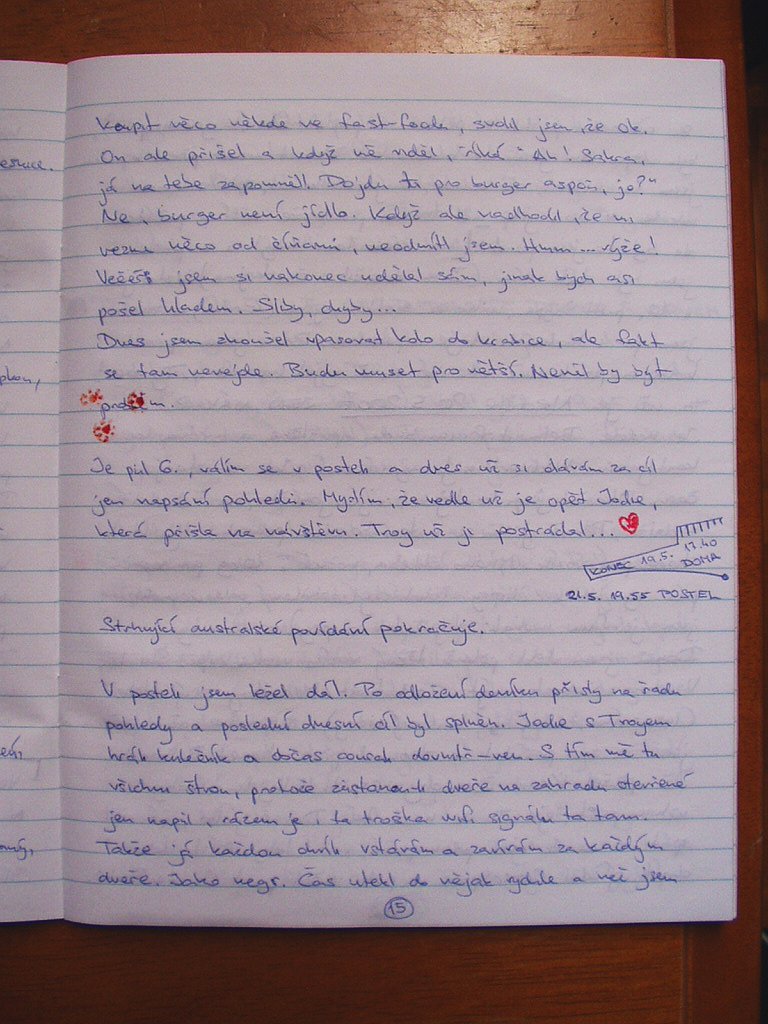 esnice.
koupit něco někde ve fast-foodu, soudil jsem, že ok.
On ale přišel a když mě viděl, říká "Ah! Sakra,
já na tebe zapomněl. Dojdu ti pro burger aspoň, jo?"
Ne, burger není jídlo. Když ale nadhodil, že mi
vezme něco od číňanů, neodmítl jsem. Hmm... rýže!
Večeři jsem si nakonec udělal sám, jinak bych asi
pošel hladem. Sliby, chyby...
Dnes jsem zkoušel vpasovat kolo do krabice, ale fakt
se tam nevejde. Budu muset pro větší. Neměl by být
problém.
Je půl 6., válím se v posteli a dnes už si dávám za cíl
jen napsání pohledů. Myslím, že vedle už je opět Jodie,
která přišla na návštěvu. Troy už ji postrádal...
KONEC 19.5. 17.40
DOMA
21.5. 19.55 POSTEL
Strhující australské povídání pokračuje.
V posteli jsem ležel dál. Po odložení deníku přišly na řadu
pohledy a poslední dnešní cíl byl splněn. Jodie s Troyem
hráli kulečník a občas courali dovnitř-ven. S tím mě tu
všichni štvou, protože zůstanou-li dveře na zahradu otevřené
jen napůl, rázem je i ta troška wifi signálu ta tam.
Takže já každou chvíli vstávám a zavírám za každým
dveře. Jako negr. Čas utekl do nějak rychle a než jsem
15